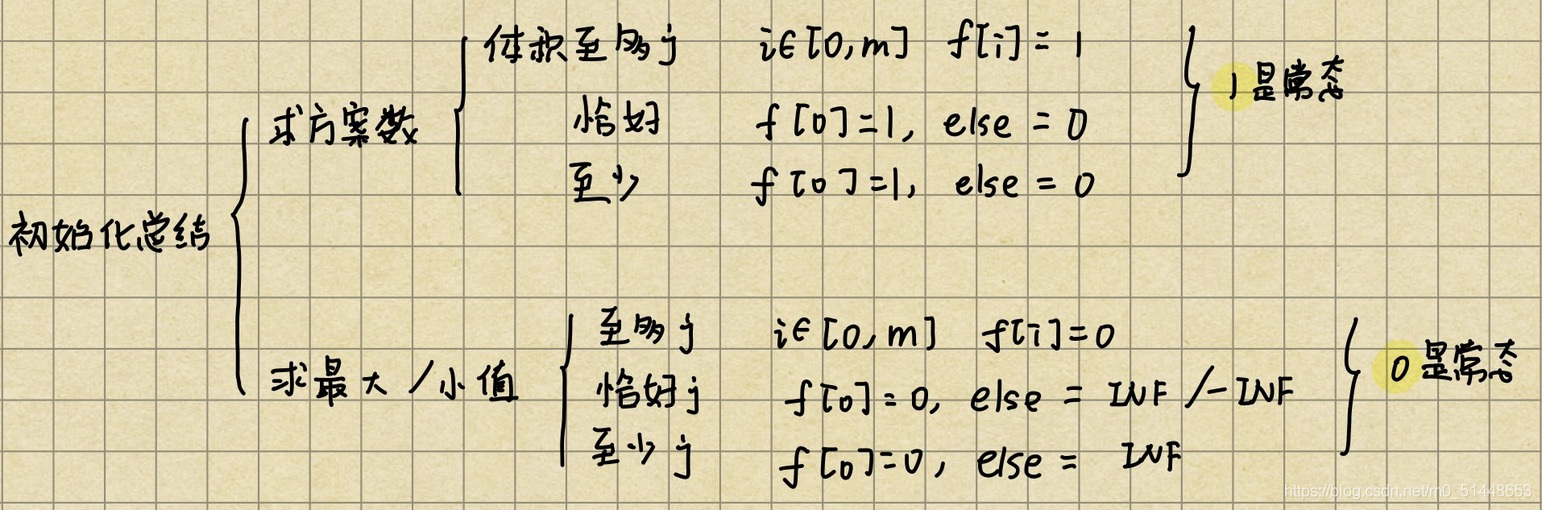 体积至多j i∈[0,m] f[i] = 1
1是常态
求方案数 恰好 f[0]=1, else = 0
至少 f[0]=1, else = 0
初始化总结
至多j i∈[0,m] f[i]=0
求最大/小值 恰好j f[0]=0, else = INF /-INF
0是常态
至少j f[0]=0, else = INF
https://blog.csdn.net/m0_51448653